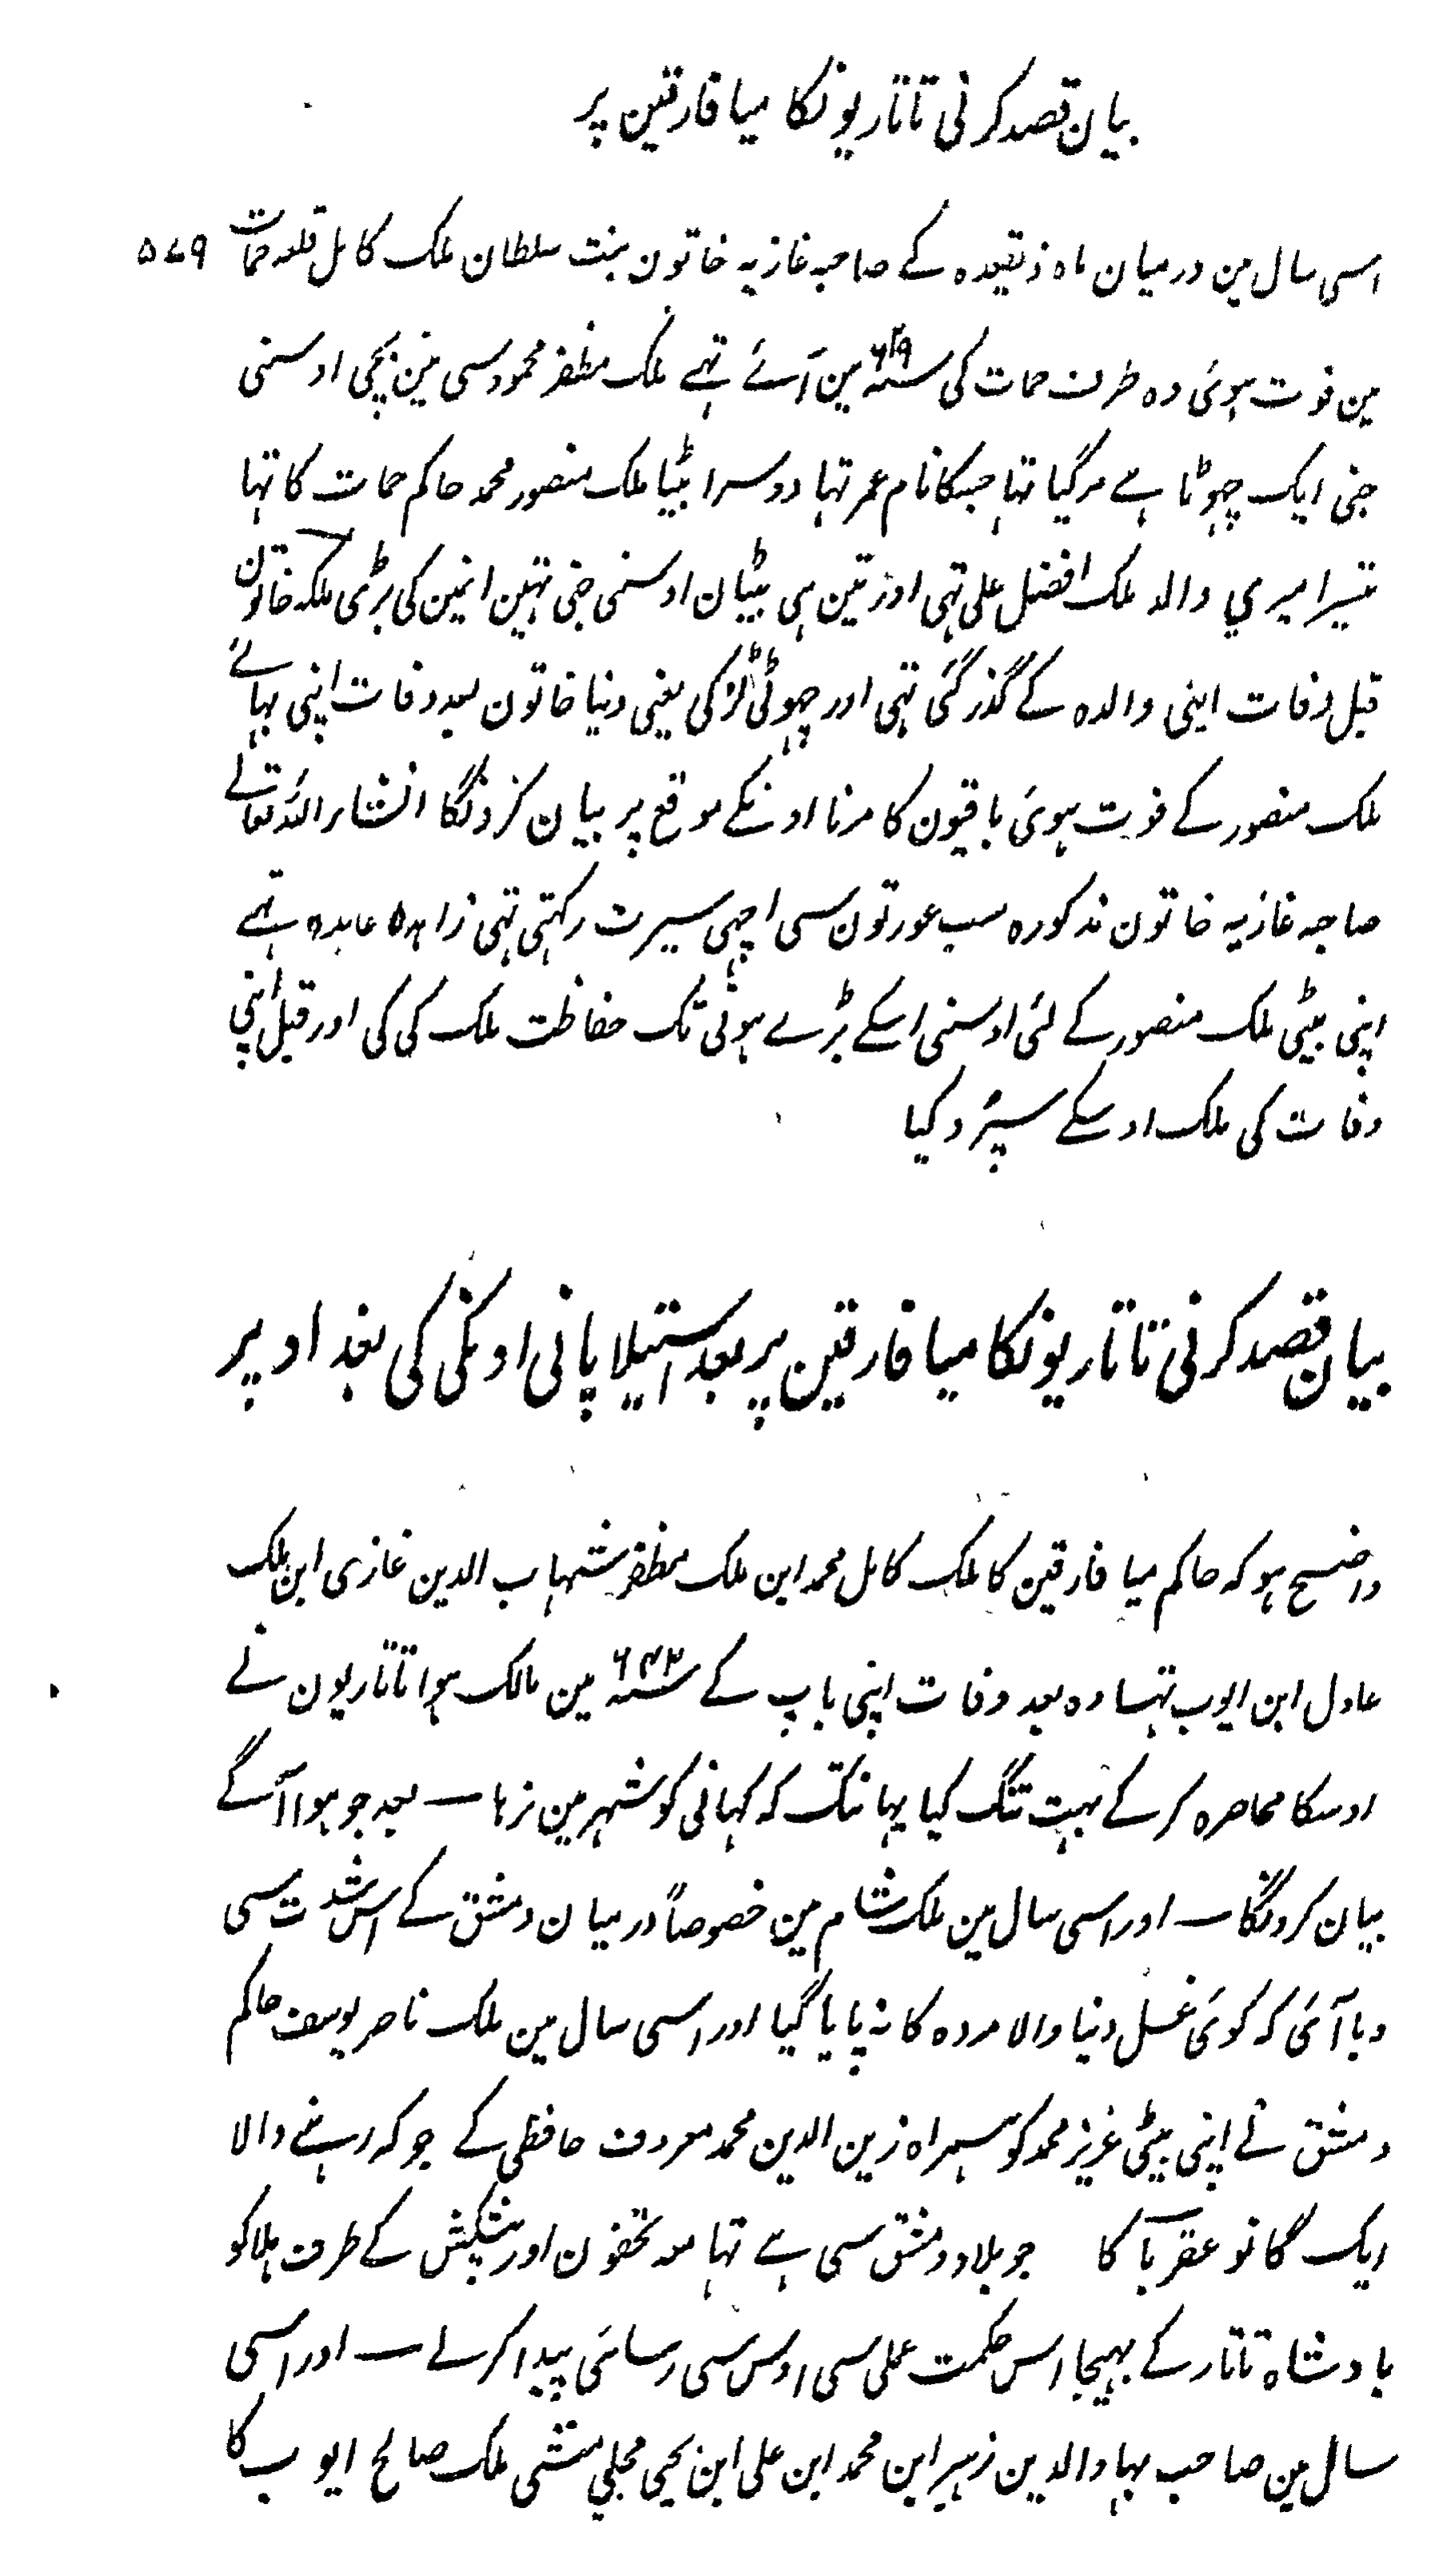 بیان قصد کرنی تاتاریونکا میافارقین پر
۵۷۹
اسی سال مین درمیان ماہ ذیقعدہ کے صاحبہ غازیہ خاتون بنت سلطان ملک کامل قلعہ حمات
مین فوت ہوئی وہ طرف حمات کی سنہ ۶۲۹ مین آئے تہے ملک مظفر محمود سی تین بچی اوسنی
جنی ایک چہوٹا ہے مرگیا تہا جسکا نام عمر تہا دوسرا بیٹا ملک منصور محمد حاکم حمات کا تہا
تیسرا میری والد ملک افضل علی تہی اور تین ہی بیٹیان اوسنی جنی تہین انمین کی بڑی ملکہ خاتون
قبل وفات اپنی والدہ کے گذر گئی تہی اور چہوٹی لڑکی یعنی دنیا خاتون بعد وفات اپنی بہائے
ملک منصور کے فوت ہوئی باقیون کا مرنا اونکے موقع پر بیان کرونگا انشاء اللہ تعالے
صاحبہ غازیہ خاتون مذکورہ سب عورتون سی اچہی سیرت رکہتی تہی زاہدہ عابدہ تہے
اپنی بیٹی ملک منصور کے لئی اوسنی اسکے بڑے ہونی تک حفاظت ملک کی کی اور قبل اپنی
وفات کی ملک اوسکے سپرد کیا
بیان قصد کرنی تاتاریونکا میافارقین پر بعد استیلا پانی اونکی کی بغداد پر
واضح ہو کہ حاکم میافارقین کا ملک کامل محمد ابن ملک مظفر شہاب الدین غازی ابن ملک
عادل ابن ایوب تہا وہ بعد وفات اپنی باپ کے سنہ ۶۴۲ مین مالک ہوا تاتاریون نے
اوسکا محاصرہ کرکے بہت تنگ کیا یہانتک کہ کہانی کو شہر مین نرہا ـ بعد جو ہوا آگے
بیان کرونگا ـ اور اسی سال مین ملک شام مین خصوصاً درمیان دمشق کے اس شدت سی
وبا آئی کہ کوئی غسل دنیا والا مردہ کا نہ پایا گیا اور اسی سال مین ملک ناصر یوسف حاکم
دمشق نے اپنی بیٹی عزیز محمد کو ہمراہ زین الدین محمد معروف حافظی کے جو کہ رہنے والا
ایک گانو عقربا کا جو بلاد دمشق سی ہے تہا معہ تحفون اور پیشکش کے طرف ہلاکو
بادشاہ تاتار کے بہیجا اس حکمت عملی سی اوس سی رسائی پیدا کرلے ـ اور اسی
سال مین صاحب بہاوالدین زہیر ابن محمد ابن علی ابن یحیی مہلبی منشی ملک صالح ایوب کا